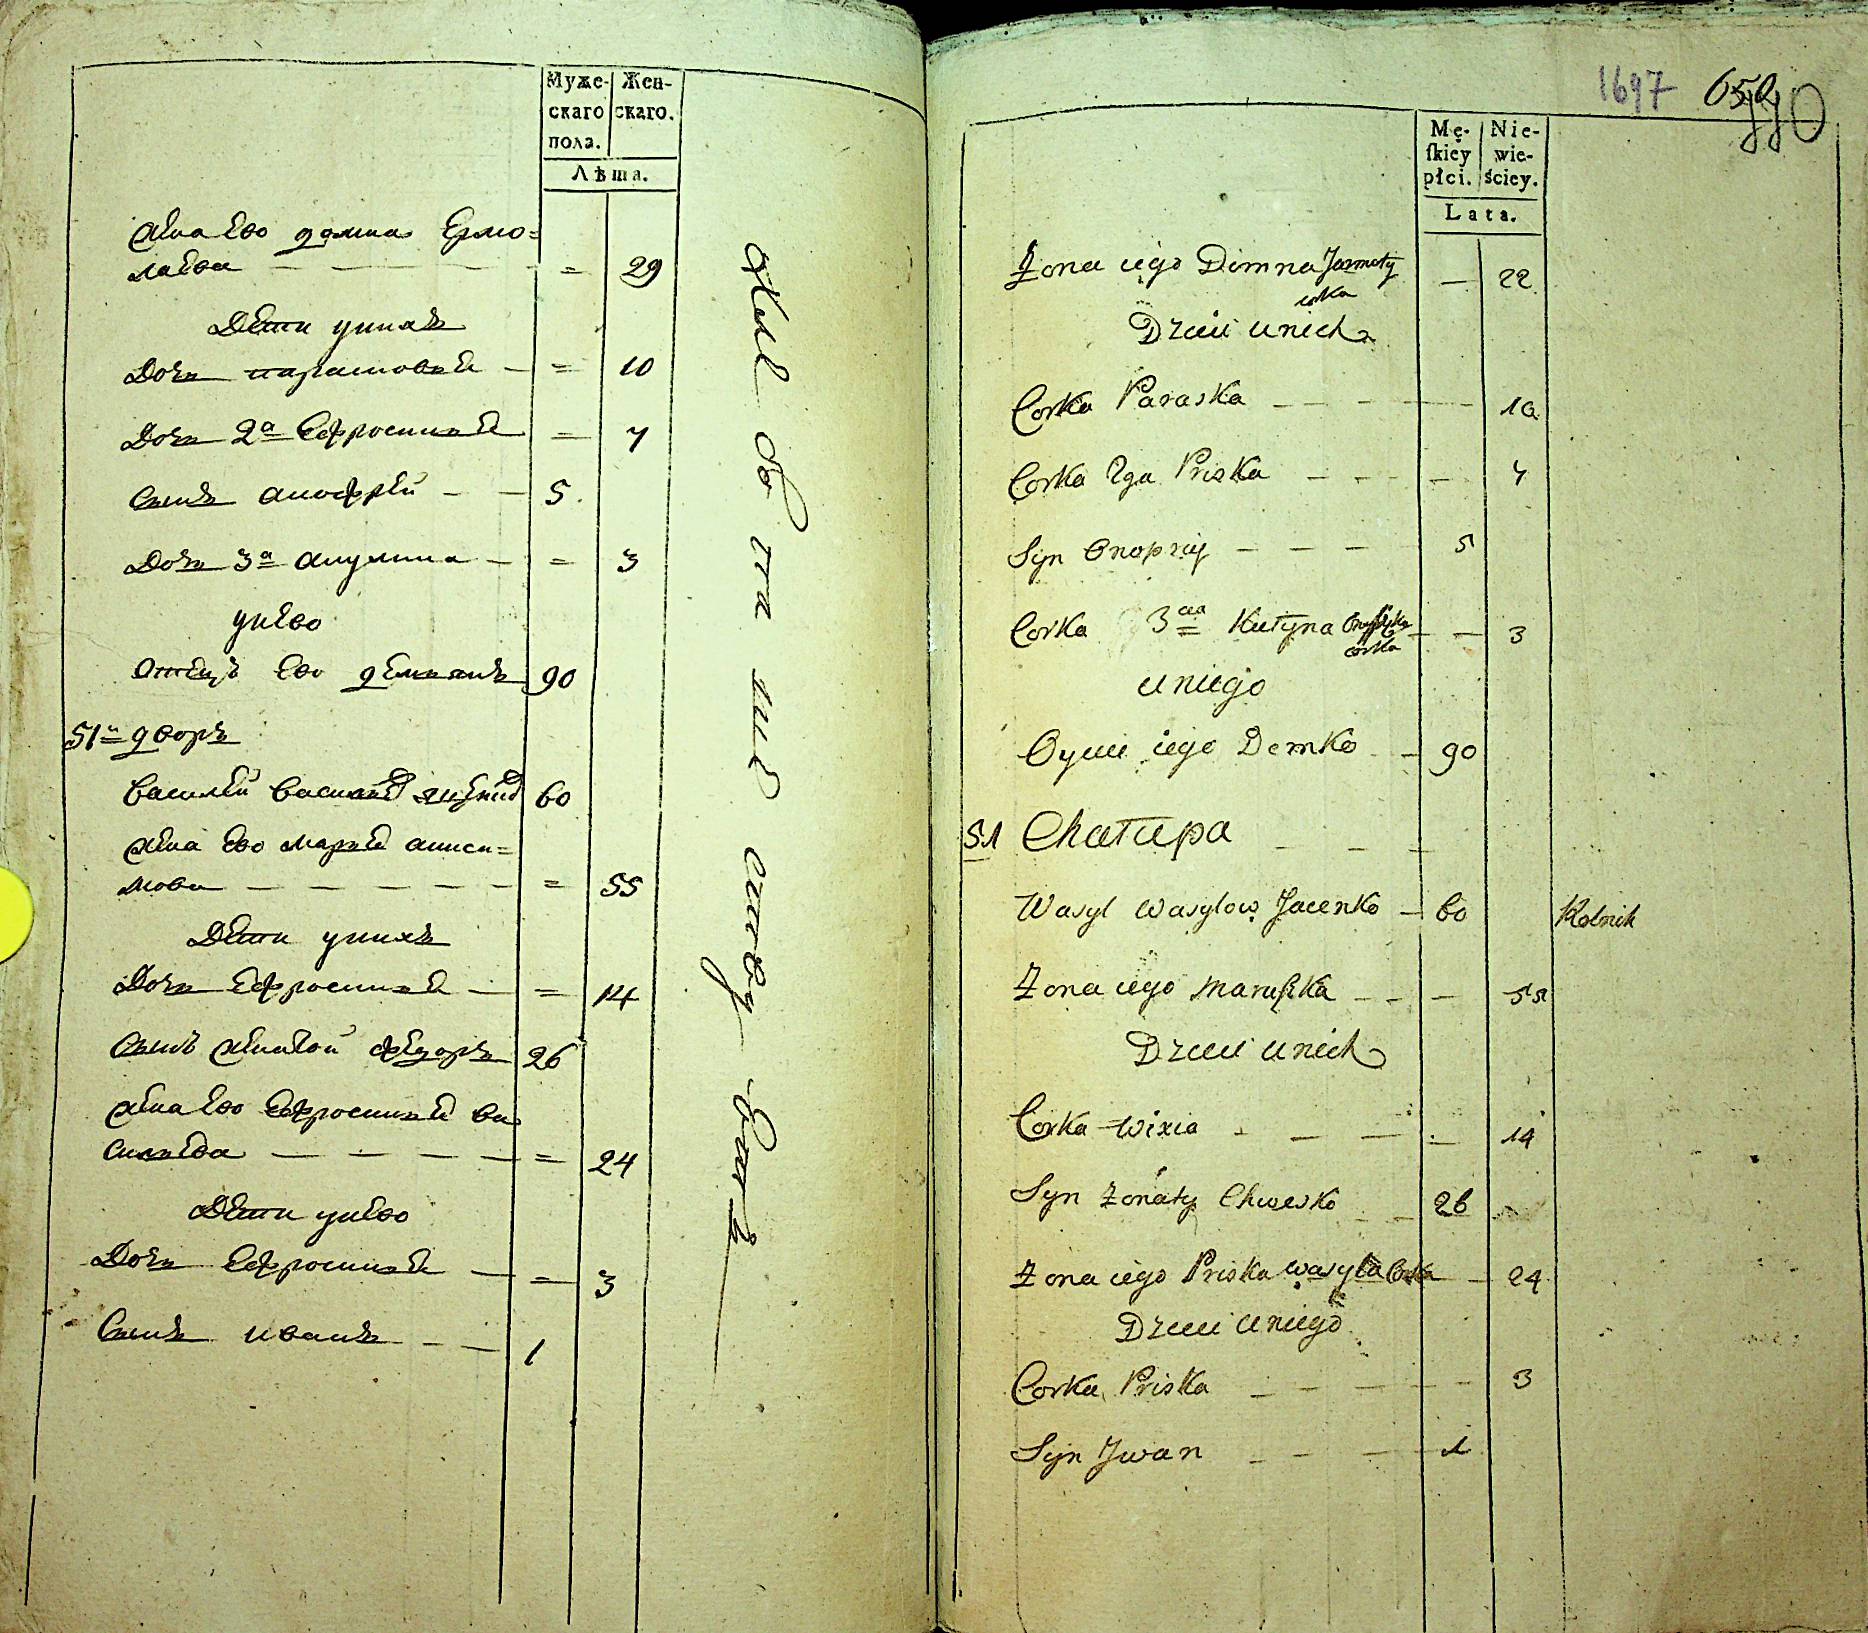 Муже- Жен-
скаго скаго.
пола.
Лѣта.
жена ево домна Ермо=
лаева — — — — — = 29
Дети унихъ
Дочь — = 10
Дочь 2я Ефросиния — 7
Сынъ анофрей — — 5
Дочь 3я акулина — = 3
унево
отецъ ево демьянъ 90
51й дворъ
Василей Васильевъ 60
жена ево Марья аниси=
мова — — — — — = 55
Дети унихъ
Дочь Ефросиния — = 14
Сынъ женатой федоръ 26
жена ево Ефросиния Ва
сильева — — — — — = 24
Дети унево
Дочь Ефросиния — = 3
Сынъ иванъ — — 1
1697 650
Mę- Nie-
skiey wie-
płci. ściey.
Lata.
Żona iego Domna Jarmoły — 22
corka
Dzieci unich
Corka Paraska — — — — 10
Corka 2ga Priska — — — — 7
Syn Onopriy — — — 5
Corka 3cia — — 3
corka
uniego
Oyciec iego Demko — 90
51 Chatupa — — —
Wasyl Wasylow Jacenko — 60 Rolnik
Żona iego Maruszka — — — 55
Dzieci unich
Corka Wixia — — — — 14
Syn Żonaty Chwesko — — 26
Żona iego Priska Wasyla Corka — 24
Dzieci uniego
Corka Priska — — — — — 3
Syn Jwan — — — 1